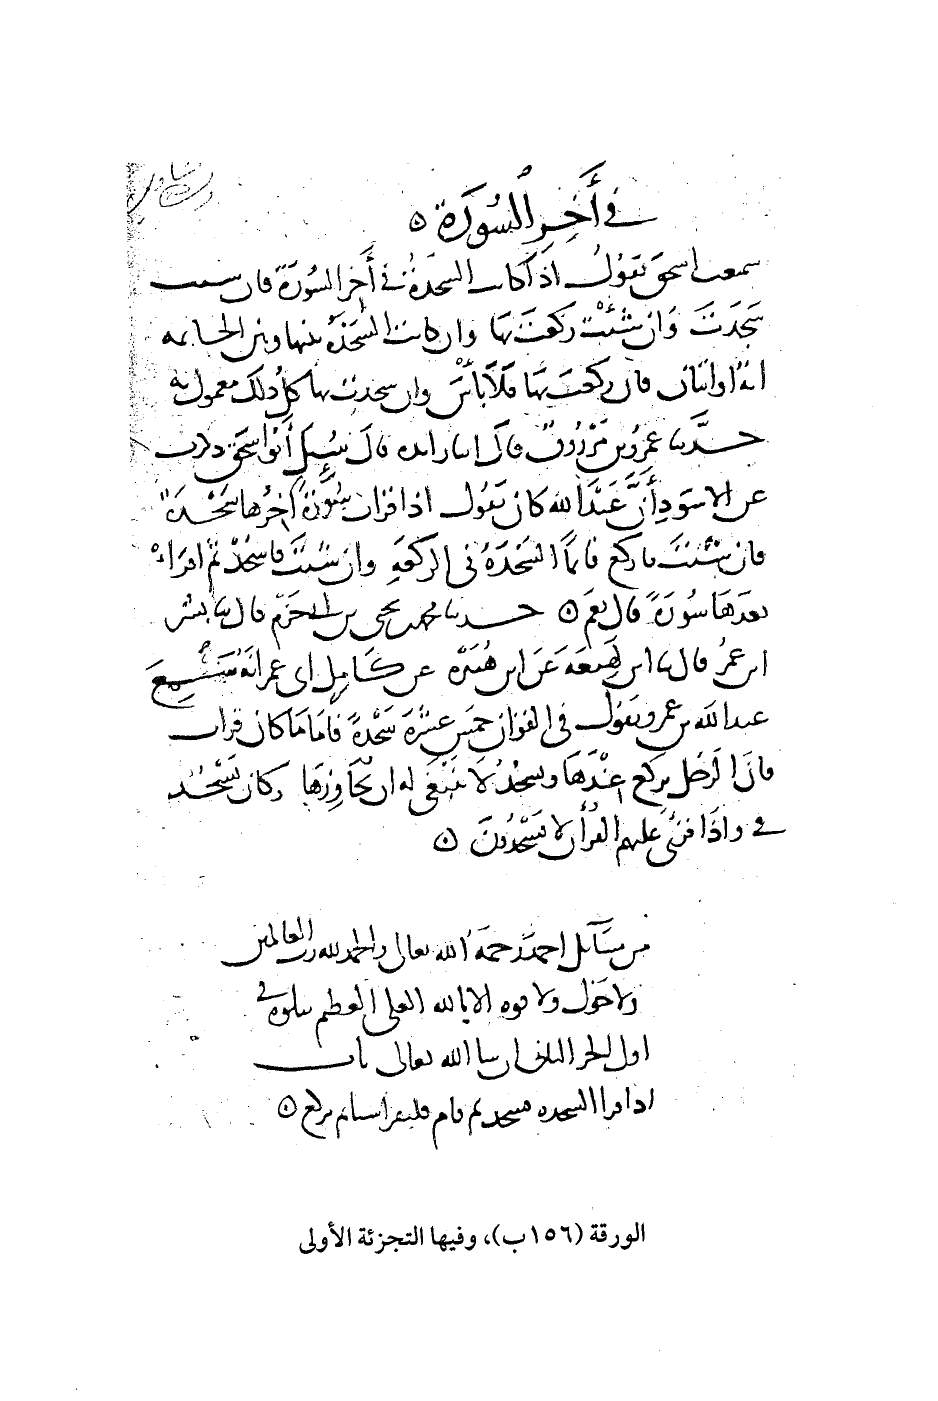 في أَخِرِ السُورَة ه
سمعت اسحق يَقوُلُ اذَا كانت السَجدَةُ في أَخِر السُورَةِ فان شئت
سَجَدَتَ وَان شئتَ رَكَعتَ بها وان كانت السَجَدَةُ بينها وبين الخاتمه
ايةٌ او ايتان فان ركعتَ بها فَلَا بَأسَ وان سجدت بها كلُ ذلك معمول به
حدَّثنا عمرو بن مَرْزُوق قال انا زايده قالَ سُئِلَ أبو اسحق
عن الاسود أَنَّ عَبْدَ الله كان يَقول اذا قرات سُورَةً آخِرُها سَجْدَةٌ
فان شئتَ فاركع فانما السَجْدَةُ في الركعَةِ وان شئتَ فاسجُدْ ثم اقراء
بعدَها سُورَةً قال نعم ه حدثنا محمد بن يحيى بن الحَزم قال ثنا بشر
ابن عمرُ قال ثنا ابن لَهِيعَه عَن ابن هُبَيْرَه عن كَامِل ابي عمر انهُ سَمِعَ
عبد الله بن عمرو يقول في القران خمسَ عشرَةَ سَجْدةً فاما ما كان قرات
فان الرَجُل يركع عِنْدَها ويسجُدُ لا يَنبَغي له ان يُجَاوِزَها وكان يَسْجُدُ
في واذَا قرئ عليهم القرأن لا يَسْجُدُونَ ه
من مسَآئل احمدَ رَحمَهُ الله تعالى والحمد لله رب العالمين
ولا حَول ولا قوه الا بالله العلى العظيم يتلوه في
اول الجز الثاني ان شا الله تعالى باب
اذا قرا السجده فسجد ثم قام فليقرا شيا ثم يركع ه
الورقة (١٥٦ب)، وفيها التجزئة الأولى